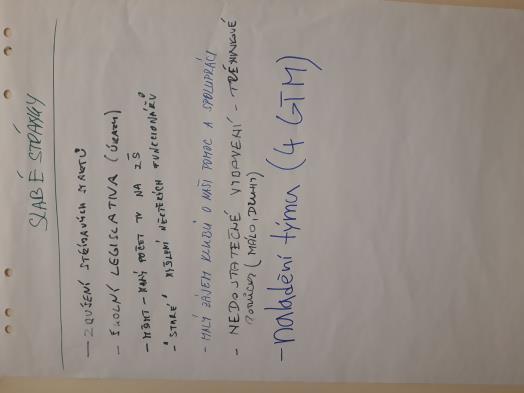 SLABÉ STRÁNKY
- ZRUŠENÍ STŘÍDAVÝCH STARTŮ
- ŠKOLNÍ LEGISLATIVA (ÚRAZY)
- MŠMT - MALÝ POČET TV NA ZŠ
- "STARÉ" MYŠLENÍ NĚKTERÝCH FUNKCIONÁŘŮ
- MALÝ ZÁJEM KLUBŮ O NAŠI POMOC A SPOLUPRÁCI
- NEDOSTATEČNÉ VYBAVENÍ - TRÉNINKOVÉ
POMŮCKY (MÁLO, DRUHY)
- naladění týmu (4 GTM)